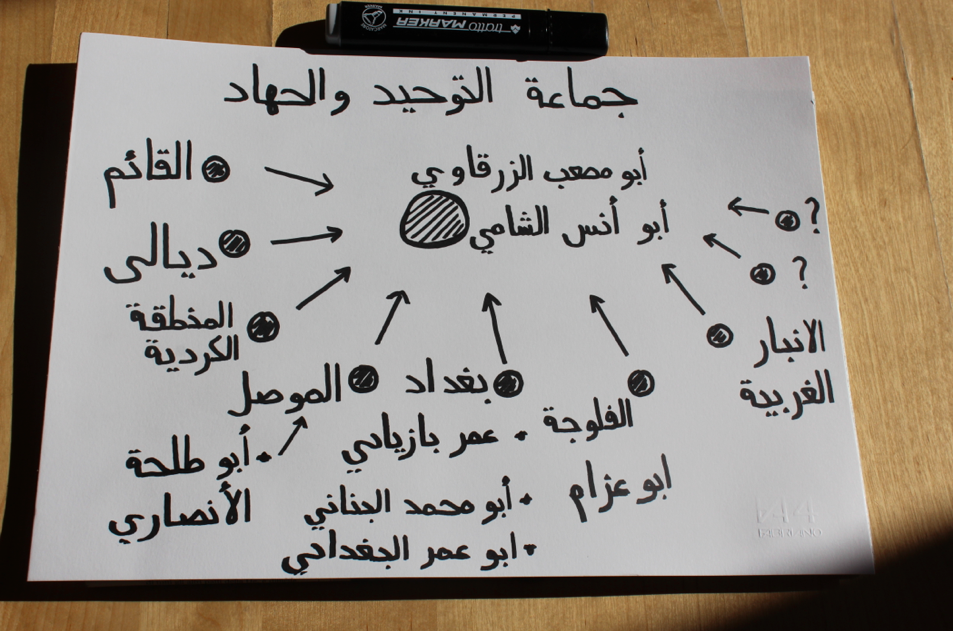 tratto MARKER
PERMANENT INK
جماعة التوحيد والجهاد
أبو مصعب الزرقاوي
أبو أنس الشامي
القائم
ديالى
المنطقة
الكردية
الموصل
أبو طلحة
الأنصاري
بغداد
عمر بازياني
أبو محمد اللبناني
ابو عمر البغدادي
الفلوجة
ابو عزام
الانبار
الغربية
?
?
FABRIANO